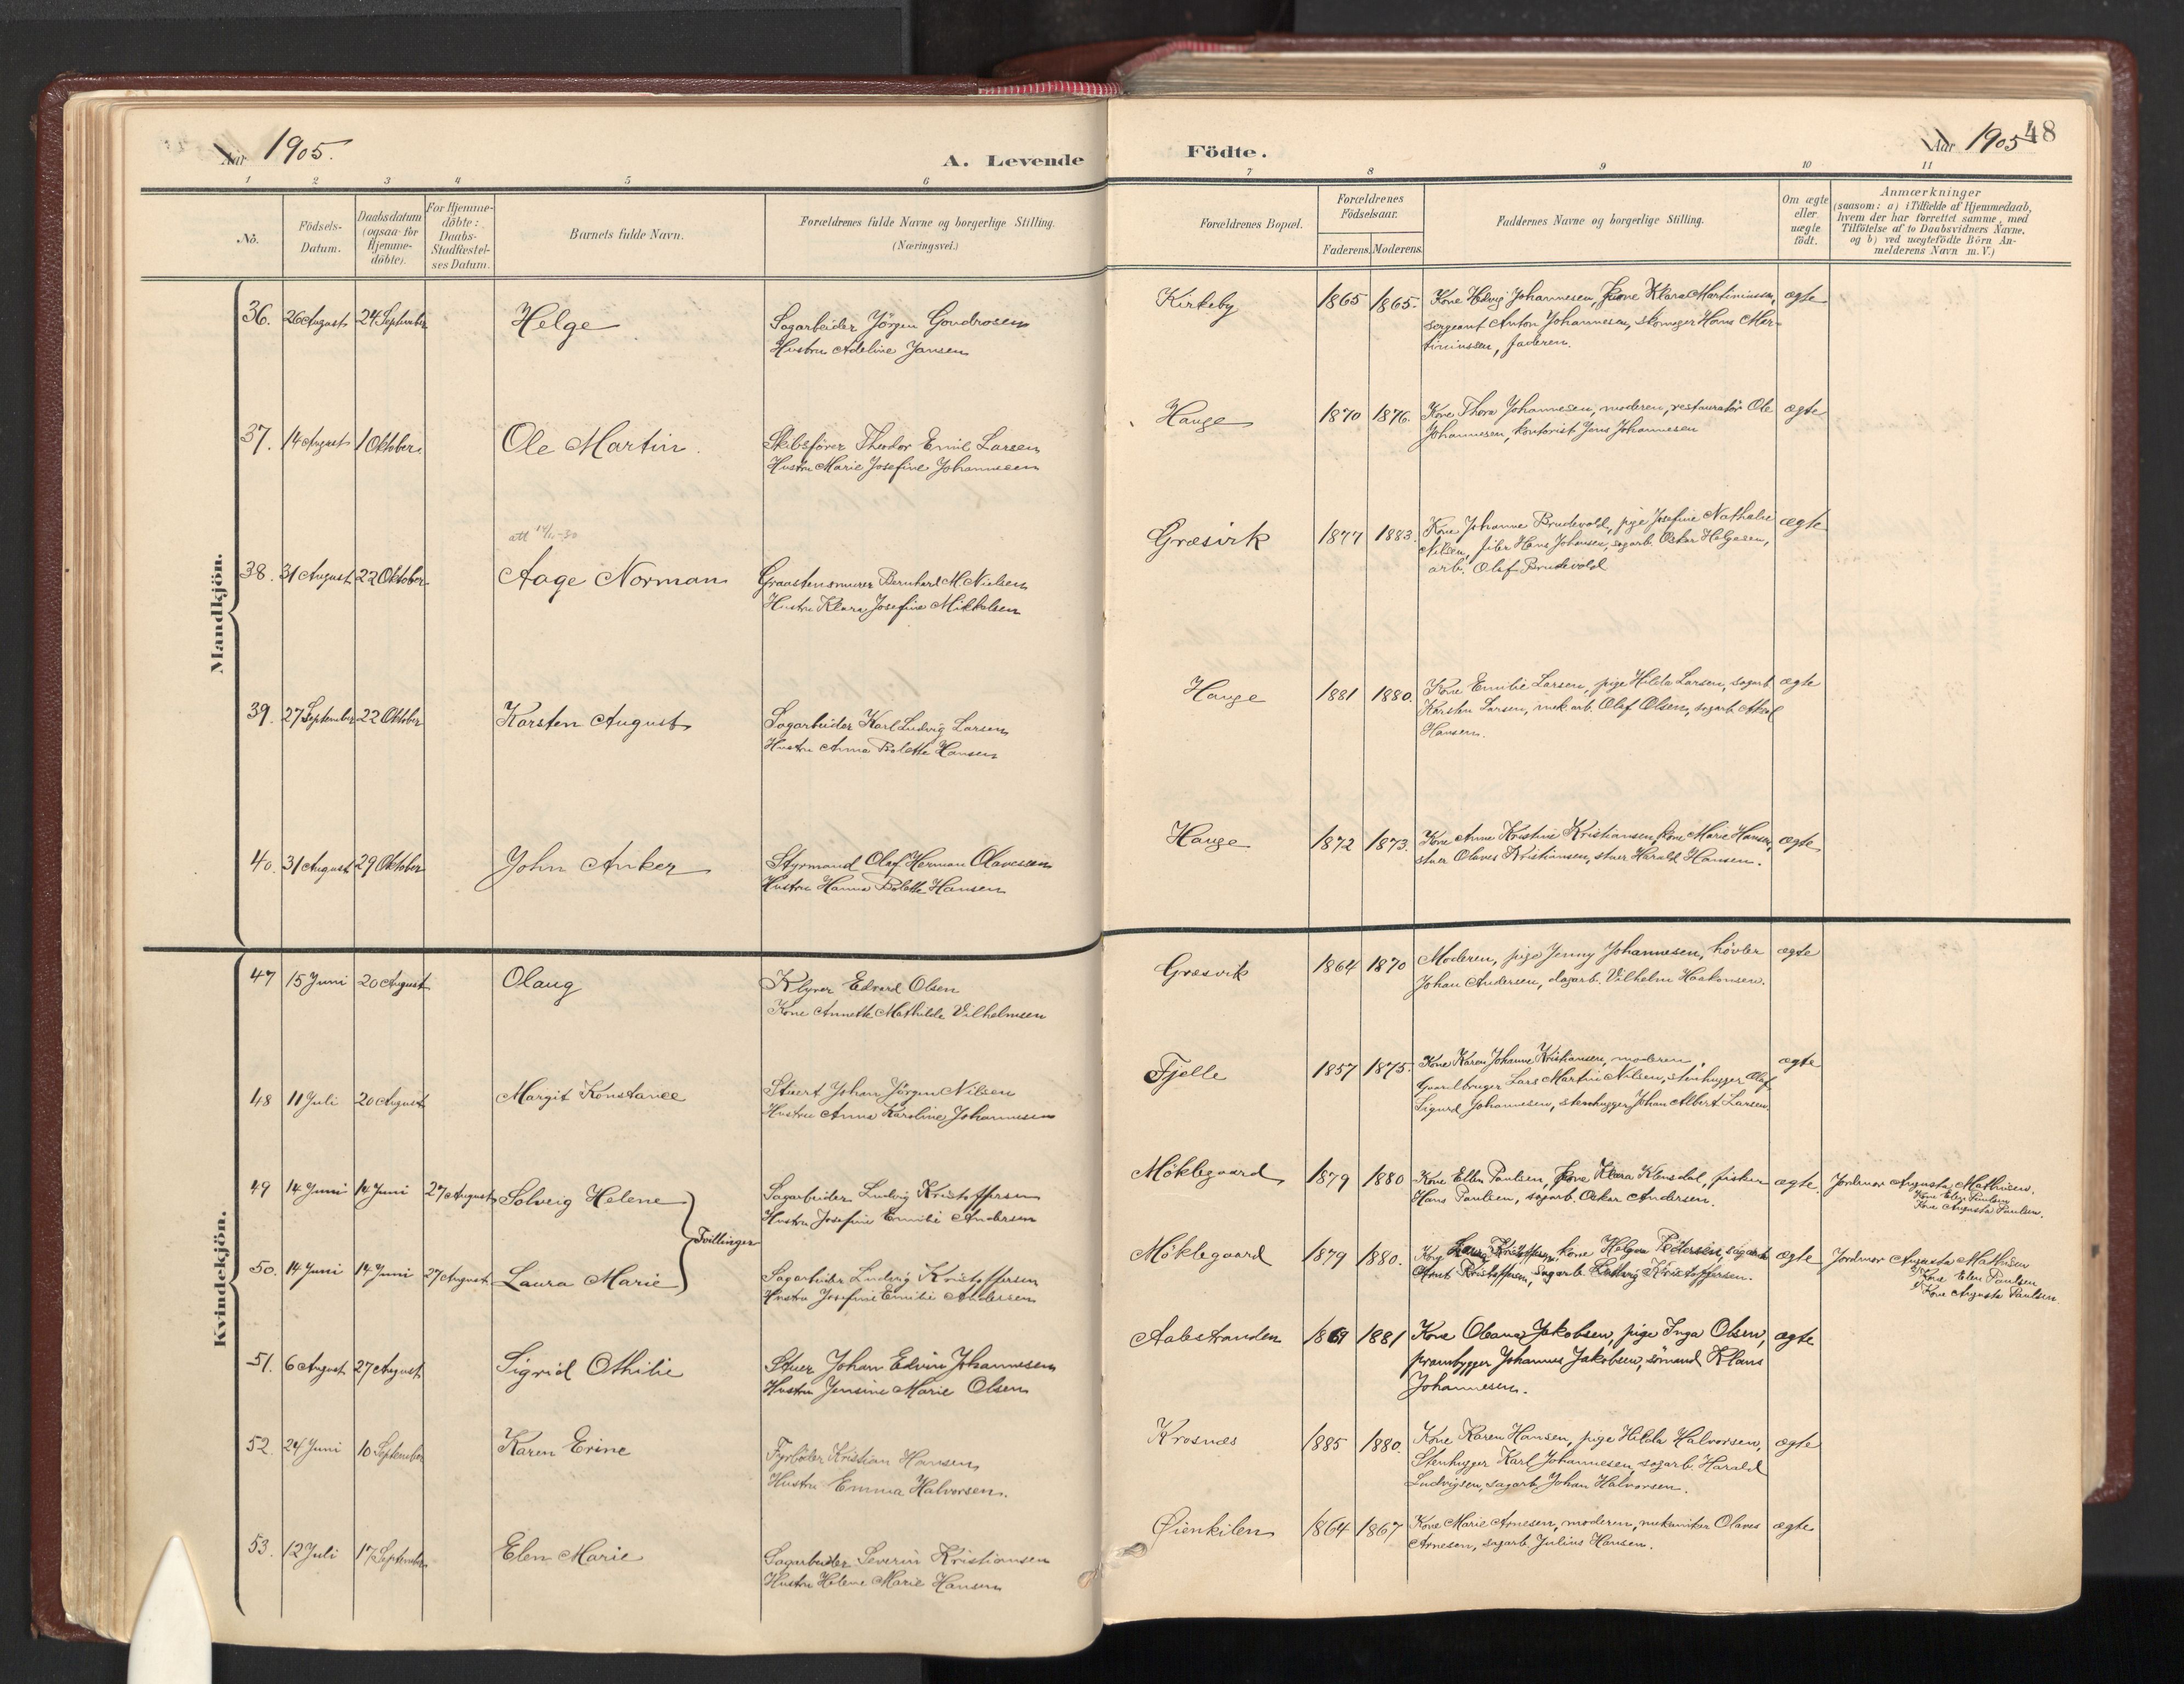 Aar 1905.
A. Levende
1 2 3 4 5 6
No.
Födsels-Datum.
Daabsdatum (ogsaa for Hjemme-döbte).
For Hjemme-döbte: Daabs-Stadfæstel-ses Datum.
Barnets fulde Navn.
Forældrenes fulde Navne og borgerlige Stilling.
(Næringsvei.)
Mandkjön.
36. 26 August 24 September Helge Sagarbeider Jörgen Gondrosen
Hustru Adeline Jansen
37. 14 August 1 Oktober Ole Martin. Skibsförer Theodor Emil Larsen
Hustru Marie Josefine Johannesen
att 14/11-30
38. 31 August 22 Oktober Aage Norman Graastensmurer Bernhard M. Nielsen
Hustru Klara Josefine Mikkelsen
39. 27 September 22 Oktober Karsten August Sagarbeider Karl Ludvig Larsen
Hustru Anna Bolette Hansen
40. 31 August 29 Oktober John Anker Styrmand Olaf Herman Olavesen
Hustru Hanna Bolette Hansen
Kvindekjön.
47 15 Juni 20 August Olaug Klyver Edvard Olsen
Kone Annette Mathilde Vilhelmsen
48 11 Juli 20 August Margit Konstance Stuert Johan Jörgen Nilsen
Hustru Anna Karoline Johannesen
49 14 Juni 14 Juni 27 August Solveig Helene Sagarbeider Ludvig Kristoffersen
Hustru Josefine Emilie Andersen
Tvillinger
50. 14 Juni 14 Juni 27 August Laura Marie Sagarbeider Ludvig Kristoffersen
Hustru Josefine Emilie Andersen
51. 6 August 27 August Sigrid Othilie Stuer Johan Edvin Johannesen
Hustru Jensine Marie Olsen
52. 24 Juni 10 September Karen Erine Fyrböder Kristian Hansen
Hustru Emma Halvorsen.
53. 12 Juli 17 September Elen Marie Sagarbeider Severin Kristiansen
Hustru Helene Marie Hansen
Födte.
Aar 1905
48
7 8 9 10 11
Forældrenes Bopæl.
Forældrenes Födselsaar.
Faderens. Moderens.
Faddernes Navne og borgerlige Stilling.
Om ægte eller uægte födt.
Anmærkninger
(saasom: a) i Tilfælde af Hjemmedaab,
hvem der har forrettet samme, med
Tilföielse af to Daabsvidners Navne,
og b) ved uægtefödte Börn An-
melderens Navn m. V.)
Kirkeby 1865 1865. Kone Helvig Johannesen, kone Klara Martiniussen, ægte
sergeant Anton Johannesen, skomager Hans Mar-
tiniussen, faderen.
Hauge 1870 1876. Kone Thora Johannesen, moderen, restauratör Ole ægte
Johannesen, kontorist Jens Johannesen
Græsvik 1877 1883. Kone Johanne Brudevold, pige Josefine Nathalie ægte
Nilsen, filer Hans Johansen, sagarb. Oskar Helgesen,
arb. Olaf Brudevold
Hauge 1881 1880. Kone Emilie Larsen, pige Hilda Larsen, sagarb ægte
Karsten Larsen, mek. arb. Olaf Olsen, sagarb. Aksel
Hansen.
Hauge 1872 1873. Kone Anne Kristine Kristiansen, kone Marie Hansen, ægte
stuer Olaves Kristiansen, stuer Harald Hansen.
Græsvik 1864 1870 Moderen, pige Jenny Johannesen, hövler ægte
Johan Andersen, dagarb. Vilhelm Haakonsen.
Fjelle 1857 1875. Kone Karen Johanne Kristiansen, moderen, ægte
Gaardbruger Lars Martin Nilsen, stenhugger Olaf
Sigurd Johannesen, stenhugger Johan Albert Larsen.
Møklegaard 1879 1880 Kone Ellen Paulsen, kone Klara Klensdal, fisker ægte. Jordmor Augusta Mathisen.
Hans Paulsen, sagarb. Oskar Andersen. Kone Elen Paulsen
Kone Augusta Paulsen.
Møklegaard 1879 1880. Kone Laura Kristoffersen, kone Helga Pedersen, sagarb ægte Jordmor Augusta Mathisen
Arnt Kristoffersen, Sagarb. Ludvig Kristoffersen. Kone Elen Paulsen
Kone Augusta Paulsen.
Aalestranden 1869 1881 Kone Oleana Jakobsen, pige Inga Olsen, ægte
prambygger Johannes Jakobsen, sömand Klaus
Johannesen.
Krosnæs 1885 1880. Kone Karen Hansen, pige Hilda Halvorsen, ægte
Stenhugger Karl Johannesen, sagarb. Harald
Ludvigsen, sagarb. Johan Halvorsen.
Øienkilen 1864 1867 Kone Marie Arnesen, moderen, mekaniker Olaves ægte
Arnesen, sagarb. Julius Hansen.